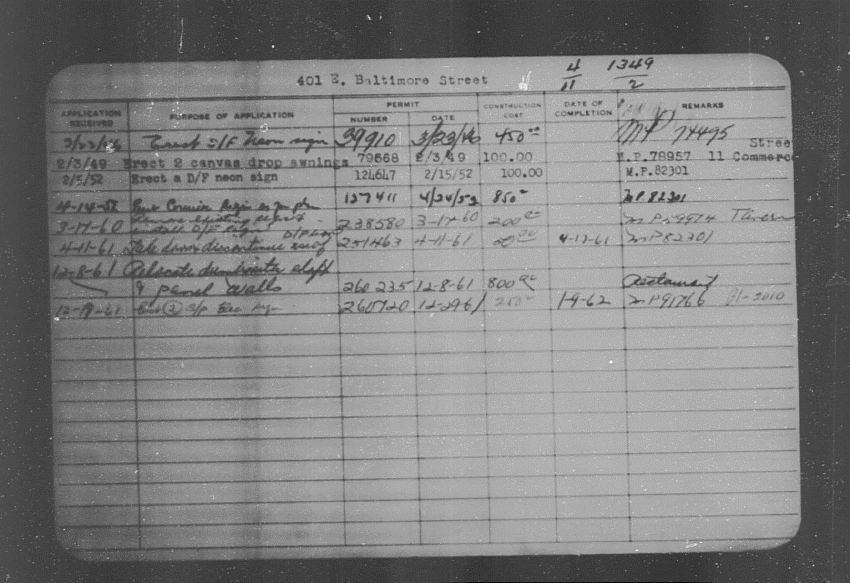 401 E. Baltimore Street 4/11 1349/2
APPLICATION RECEIVED PURPOSE OF APPLICATION PERMIT NUMBER DATE CONSTRUCTION COST DATE OF COMPLETION REMARKS
3/23/46 Erect D/F Neon sign 39910 3/23/46 450.00 MP 74495
Stree
2/3/49 Erect 2 canvas drop awnings 79668 2/3/49 100.00 M.P.78957 11 Commerc
2/5/52 Erect a D/F neon sign 124647 2/15/52 100.00 M.P.82301
4-14-52 127411 4/24/52 850 M.P.82301
3-17-60 Remove existing
install D/F sign 238580 3-17-60 200.00 Tavern
4-11-61 Take down discontinue use of 251463 4-11-61 4-12-61 MP82301
12-8-61 Relocate dumbwaiter shaft
& panel walls 260235 12-8-61 800.00 Restaurant
12-19-61 (2) S/F Elec sign 260720 12-29-61 250 1-9-62 MP91766